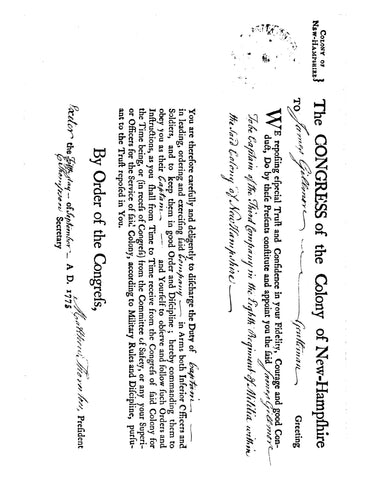 COLONY OF
NEW-HAMPSHIRE
The CONGRESS of the Colony of New-Hampſhire
TO James Gilmore Gentleman Greeting
WE repoſing eſpecial Truſt and Confidence in your Fidelity, Courage and good Con-
duct, Do by theſe Preſents conſtitute and appoint you the ſaid James Gilmore
To be Captain of the Third Company in the Eighth Regiment of Militia within
the said Colony of New Hampshire
You are therefore carefully and deligently to diſcharge the Duty of Captain
in leading, ordering and exerciſing ſaid Company in Arms both Inferior Officers and
Soldiers, and to keep them in good Order and Diſcipline; hereby commanding them to
obey you as their Captain and Yourſelf to obſerve and follow ſuch Orders and
Inſtructions, as you ſhall from Time to Time receive from the Congreſs of ſaid Colony for
the Time being, or (in receſs of Congreſs) from the Committee of Safety, or any your Superi-
or Officers for the Service of ſaid Colony, according to Military Rules and Diſcipline, purſu-
ant to the Truſt repoſed in You.
By Order of the Congreſs,
Exeter the Day of September A D. 1775 Matthew Thornton, Preſident
E Thompson Secretary